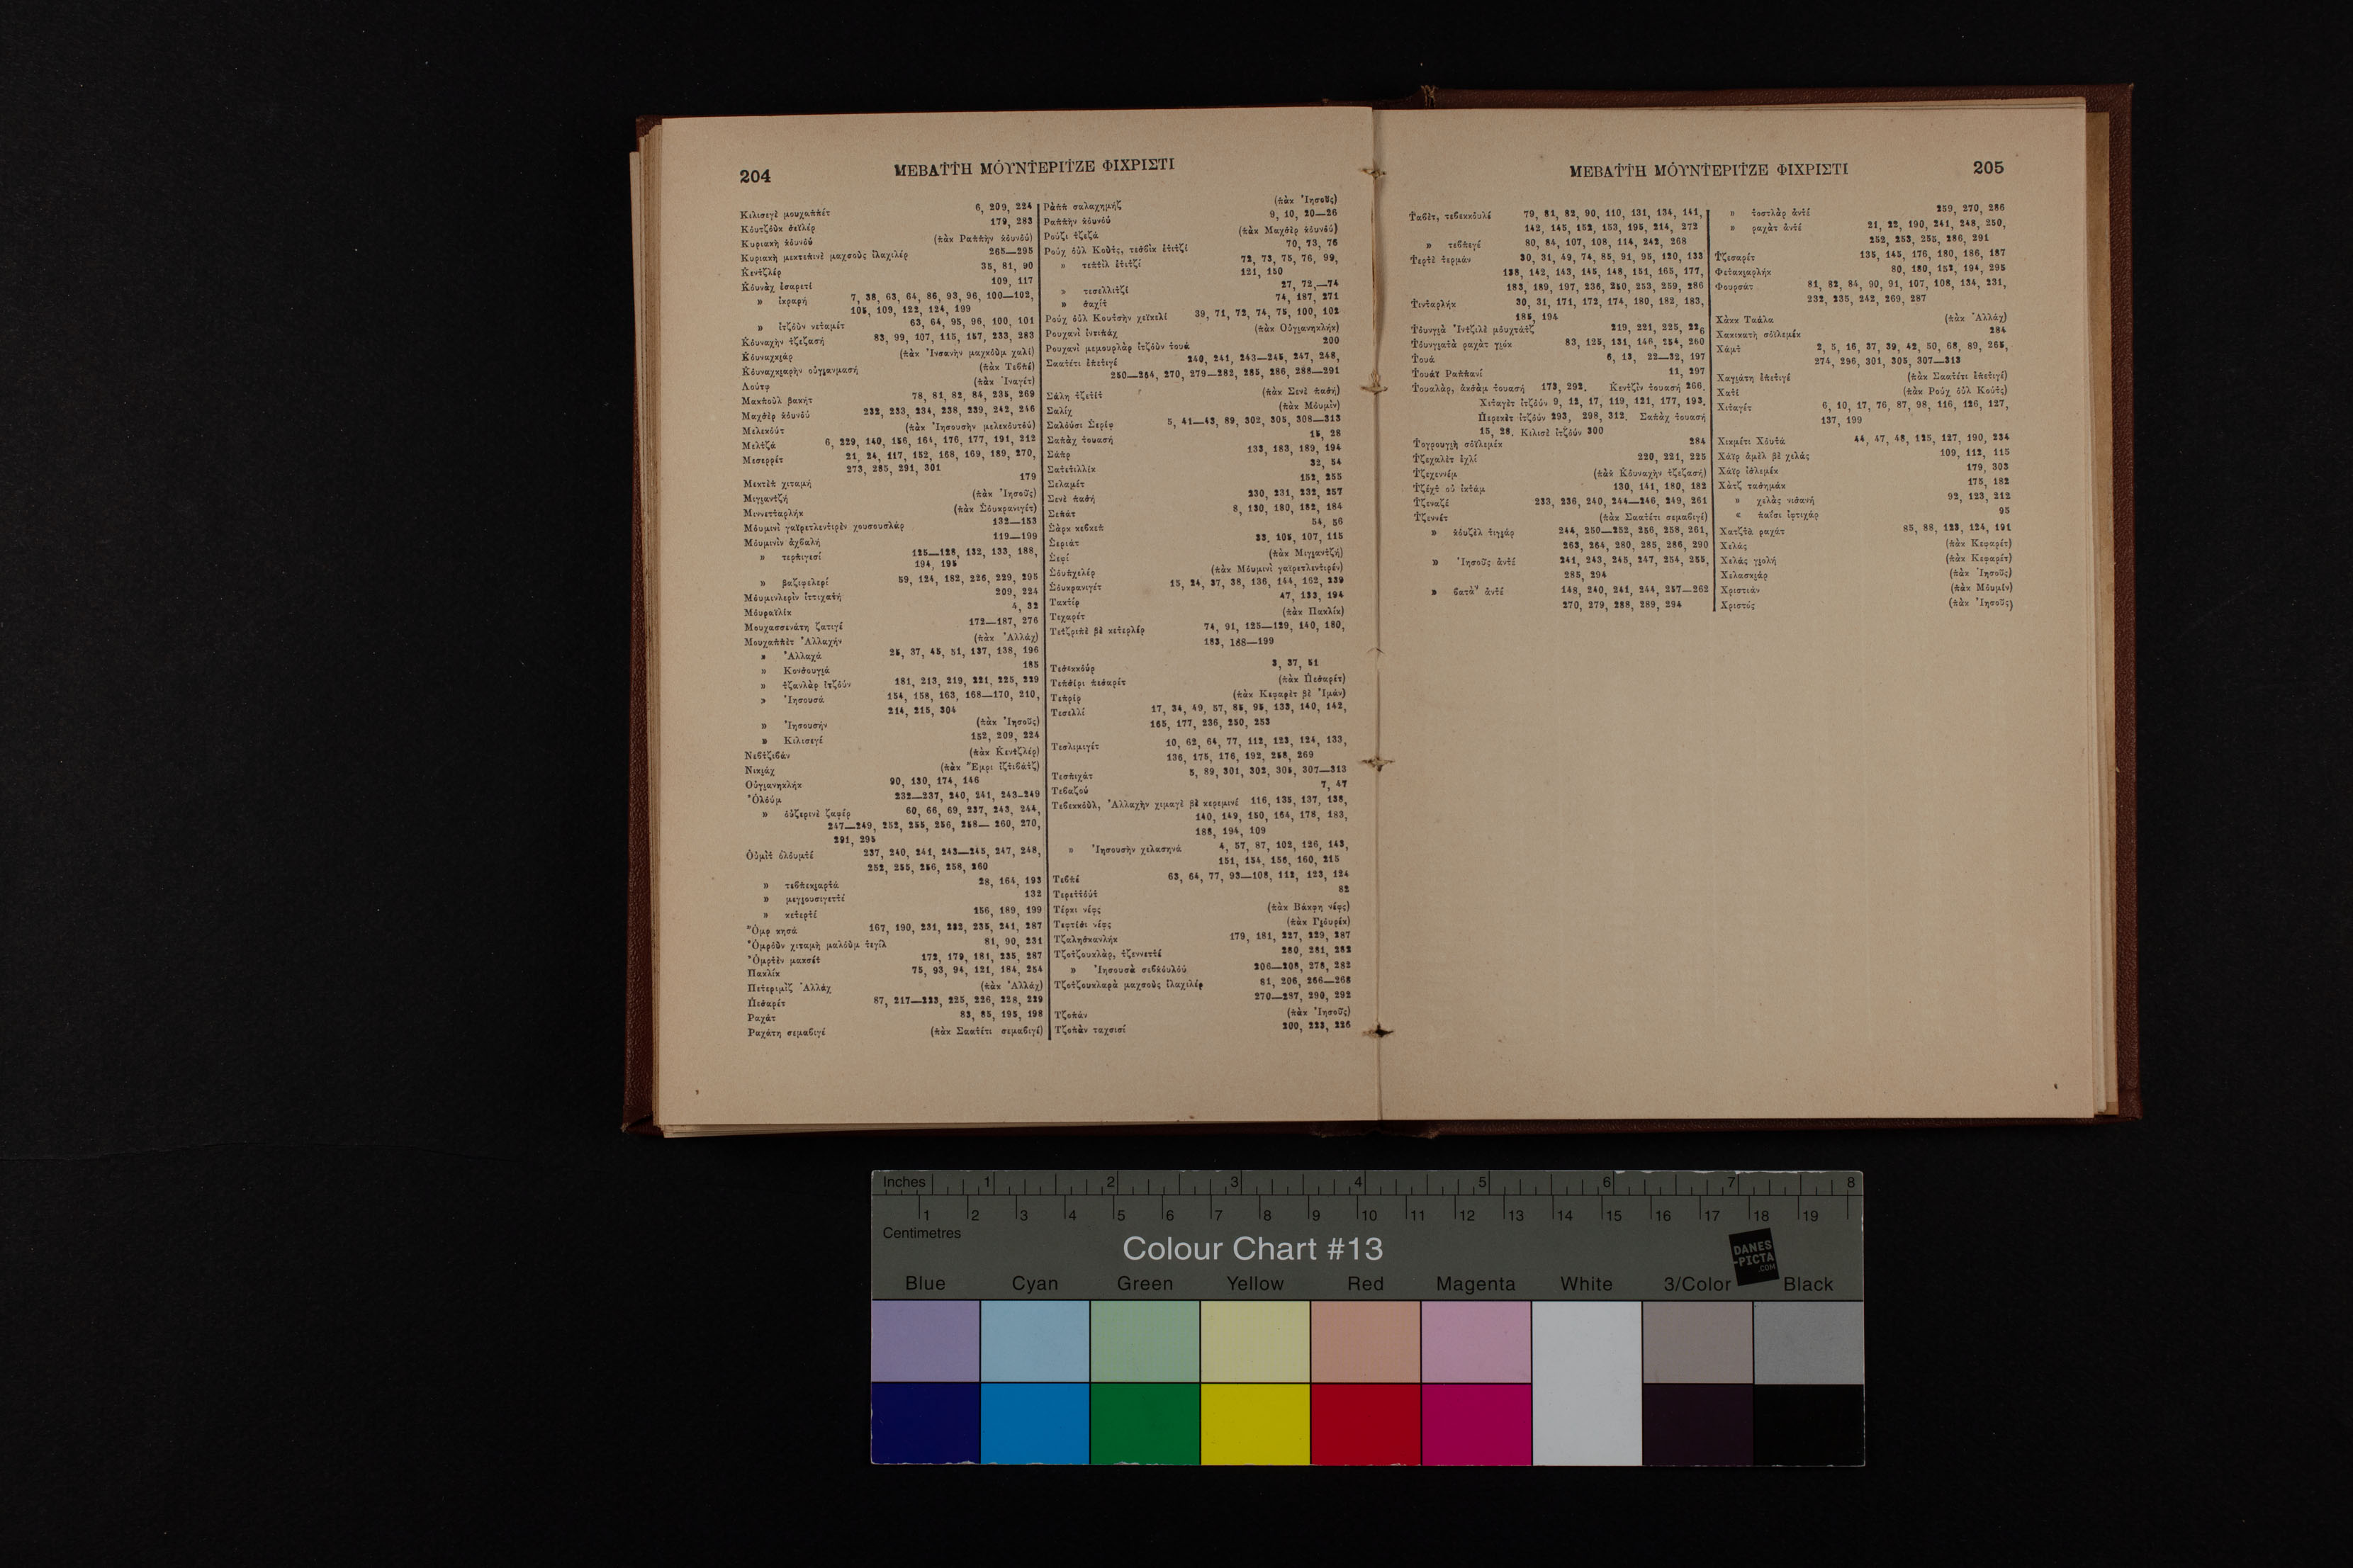 204
ΜΕΒΑΤ̇Τ̇Η ΜΟΥΝΤ̇ΕΡΙΤ̇ΖΕ ΦΙΧΡΙΣΤΙ
Κιλισεγὲ μουχαππέτ 6, 209, 224
179, 283
Κυριακὴ κουνού (πὰκ Ραππὴν κουνού)
Κυριακὴ μεκτεπινὲ μαχσοὺς ἰλαχιλέρ 265—295
Κεντζλέρ 35, 81, 90
Κόυνὰχ ἐσαρετί 109, 117
» ἰκραρή 7, 38, 63, 64, 86, 93, 96, 100—102,
105, 109, 122, 124, 199
» ἰτζόυν νεταμέτ 63, 64, 95, 96, 100, 101
Κόυναχὴν τζεζασή 83, 99, 107, 115, 157, 233, 283
Κόυναχκιάρ (πὰκ Ἰνσανὴν μαχκόυμ χαλί)
Κόυναχκιαρὴν οὐγιανμασή (πὰκ Τεβπέ)
Λούτφ (πὰκ Ἰναγέτ)
Μακποὺλ βακήτ 78, 81, 82, 84, 235, 269
Μαχσὲρ κόυνόυ 232, 233, 234, 238, 239, 242, 246
Μελεκόυτ (πὰκ Ἰησουσὴν μελεκόυτόυ)
Μελτζά 6, 229, 140, 156, 164, 176, 177, 191, 212
Μεσερρέτ 21, 24, 117, 152, 168, 169, 189, 270,
273, 285, 291, 301
Μεκτὲπ χιταμή 179
Μιγιαντζή (πὰκ Ἰησοῦς)
Μιννετταρλήκ (πὰκ Σόυκρανιγέτ)
Μόυμινὶ γαϊρετλεντιρὲν χουσουσλάρ 132—153
Μόυμινὶν ἀχβαλή 119—199
» τερπιγεσί 125—128, 132, 133, 188,
194, 195
» βαζιφελερί 59, 124, 182, 226, 229, 295
Μόυμινλερὶν ἰττιχατή 209, 224
Μόυραϊλίκ 4, 32
Μουχασσενάτη ζατιγέ 172—187, 276
Μουχαππὲτ Ἀλλαχήν (πὰκ Ἀλλάχ)
» Ἀλλαχά 25, 37, 45, 51, 137, 138, 196
» Κονσουγιά 185
» τζανλὰρ ἰτζόυν 181, 213, 219, 221, 225, 229
» Ἰησουσά 154, 158, 163, 168—170, 210,
214, 215, 304
» Ἰησουσήν (πὰκ Ἰησοῦς)
» Κιλισεγέ 152, 209, 224
Νεβτζιβάν (πὰκ Κεντζλέρ)
Νικιάχ (πὰκ Ἔμρι ἰζτιβάτζ)
Οὐγιανηκλήκ 90, 130, 174, 146
Ὀλόυμ 232—237, 240, 241, 243-249
» ὀυζερινὲ ζαφέρ 60, 66, 69, 237, 243, 244,
247—249, 252, 255, 256, 258— 260, 270,
291, 295
Ὀυμὶτ ὀλόυμτέ 237, 240, 241, 243—245, 247, 248,
252, 255, 256, 258, 260
» τεβπεκιαρτά 28, 164, 193
» μεγιουσιγεττέ 132
» κετερτέ 156, 189, 199
Ὄμρ κησά 167, 190, 231, 232, 235, 241, 287
Ὀμρόυν χιταμὴ μαλόυμ τεγίλ 81, 90, 231
Ὀμρτὲν μακσέτ 172, 179, 181, 235, 287
Πακλίκ 75, 93, 94, 121, 184, 254
Πετεριμὶζ Ἀλλάχ (πὰκ Ἀλλάχ)
Πεσαρέτ 87, 217—223, 225, 226, 228, 229
Ραχάτ 83, 85, 195, 198
Ραχάτη σεμαβιγέ (πὰκ Σαατέτι σεμαβιγέ)
Ρὰππ σαλαχημήζ (πὰκ Ἰησοῦς)
Ραππὴν κόυνόυ 9, 10, 20—26
Ρούζι τζεζά (πὰκ Μαχσὲρ κόυνόυ)
Ροὺχ ὀὺλ Κοὺτς, τεσβὶκ ἐτιτζί 70, 73, 76
» τεπτὶλ ἐτιτζί 72, 73, 75, 76, 99,
121, 150
» τεσελλιτζί 27, 72,—74
» σαχίτ 74, 187, 271
Ροὺχ ὀὺλ Κουτσὴν χεϊκελί 39, 71, 72, 74, 75, 100, 102
Ρουχανὶ ἰντιπάχ (πὰκ Οὐγιανηκλήκ)
Ρουχανὶ μεμουρλὰρ ἰτζόυν τουά 200
Σαατέτι ἐπετιγέ 240, 241, 243—245, 247, 248,
250—264, 270, 279—282, 285, 286, 288—291
Σάλη τζετίτ (πὰκ Σενὲ πασή)
Σαλίχ (πὰκ Μόυμὶν)
Σαλόυσι Σερίφ 5, 41—43, 89, 302, 305, 308—313
Σαπὰχ τουασή 15, 28
Σάπρ 133, 183, 189, 194
Σατετιλλίκ 32, 54
Σελαμέτ 152, 255
Σενὲ πασή 230, 231, 232, 257
Σεπάτ 8, 130, 180, 182, 184
Σὰρκ κεβκεπ 54, 56
Σεριάτ 33, 105, 107, 115
Σεφί (πὰκ Μιγιαντζή)
Σόυπχελέρ (πὰκ Μόυμινὶ γαϊρετλεντιρέν)
Σόυκρανιγέτ 15, 24, 37, 38, 136, 144, 162, 239
Τακτίρ 47, 133, 194
Τεχαρέτ (πὰκ Πακλίκ)
Τετζριπὲ βὲ κετερλέρ 74, 91, 125—129, 140, 180,
183, 188—199
Τεσεκκόυρ 3, 37, 51
Τεπσίρι πεσαρέτ (πὰκ Πεσαρέτ)
Τεπρίρ (πὰκ Κεφαρὲτ βὲ Ἰμάν)
Τεσελλί 17, 34, 49, 57, 85, 95, 133, 140, 142,
165, 177, 236, 250, 253
Τεσλιμιγέτ 10, 62, 64, 77, 112, 123, 124, 133,
136, 175, 176, 192, 258, 269
Τεσπιχάτ 5, 89, 301, 302, 305, 307—313
Τεβαζού 7, 47
Τεβεκκόυλ, Ἀλλαχὴν χιμαγὲ βὲ κερεμινέ 116, 135, 137, 138,
140, 149, 150, 164, 178, 183,
188, 194, 109
» Ἰησουσὴν χελασηνά 4, 57, 87, 102, 126, 143,
151, 154, 156, 160, 215
Τεβπέ 63, 64, 77, 93—108, 112, 123, 124
Τερεττόυτ 82
Τέρκι νέφς (πὰκ Βάκφη νέφς)
Τεφτίσι νέφς (πὰκ Γιόυρέκ)
Τζαλησκανλήκ 179, 181, 227, 229, 287
Τζοτζουκλὰρ, τζεννεττέ 280, 281, 282
» Ἰησουσὰ σεβκόυλόυ 206—208, 278, 282
Τζοτζουκλαρὰ μαχσοὺς ἰλαχιλέρ 81, 206, 266—268
270—287, 290, 292
Τζοπάν (πὰκ Ἰησοῦς)
Τζοπὰν ταχσισί 200, 223, 226
ΜΕΒΑΤ̇Τ̇Η ΜΟΥΝΤ̇ΕΡΙΤ̇ΖΕ ΦΙΧΡΙΣΤΙ
205
Ταβὲτ, τεβεκκόυλέ 79, 81, 82, 90, 110, 131, 134, 141,
142, 145, 152, 153, 195, 214, 272
» τεβπεγέ 80, 84, 107, 108, 114, 242, 268
Τερτὲ τερμάν 30, 31, 49, 74, 85, 91, 95, 120, 133
138, 142, 143, 145, 148, 151, 165, 177,
183, 189, 197, 236, 250, 253, 259, 286
Τινταρλήκ 30, 31, 171, 172, 174, 180, 182, 183,
185, 194
Τόυνγιὰ Ἰντζιλὲ μόυχτάτζ 219, 221, 225, 226
Τόυνγιατὰ ραχὰτ γιόκ 83, 125, 131, 146, 254, 260
Τουά 6, 13, 22—32, 197
Τουάϊ Ραππανί 11, 297
Τουαλὰρ, ἀκσὰμ τουασή 173, 292. Κεντζὶν τουασή 266.
Χιταγὲτ ἰτζόυν 9, 12, 17, 119, 121, 177, 193.
Περεκὲτ ἰτζόυν 293, 298, 312. Σαπὰχ τουασή
15, 28. Κιλισὲ ἰτζόυν 300
Τογρουγιὴ σόϊλεμέκ 284
Τζεχαλὲτ ἐχλί 220, 221, 225
Τζεχεννέμ (πὰκ Κόυναχὴν τζεζασή)
Τζέχτ οὐ ἰκτάμ 130, 141, 180, 182
Τζεναζέ 233, 236, 240, 244—246, 249, 261
Τζεννέτ (πὰκ Σαατέτι σεμαβιγέ)
» κόυζὲλ τιγιάρ 244, 250—252, 256, 258, 261,
263, 264, 280, 285, 286, 290
» Ἰησοῦς ἀντέ 241, 243, 245, 247, 254, 255,
285, 294
» βατὰν ἀντέ 148, 240, 241, 244, 257—262
270, 279, 288, 289, 294
» τοστλὰρ ἀντέ 259, 270, 286
» ραχὰτ ἀντέ 21, 22, 190, 241, 248, 250,
252, 253, 255, 286, 291
Τζεσαρέτ 135, 145, 176, 180, 186, 187
Φετακιαρλήκ 80, 180, 152, 194, 295
Φουρσάτ 81, 82, 84, 90, 91, 107, 108, 134, 231,
232, 235, 242, 269, 287
Χὰκκ Τααλα (πὰκ Ἀλλάχ)
Χακικατὴ σόϊλεμέκ 284
Χάμτ 2, 5, 16, 37, 39, 42, 50, 68, 89, 265,
274, 296, 301, 305, 307—313
Χαγιάτη ἐπετιγέ (πὰκ Σαατέτι ἐπετιγέ)
Χατί (πὰκ Ροὺχ ὀὺλ Κούτς)
Χιταγέτ 6, 10, 17, 76, 87, 98, 116, 126, 127,
137, 199
Χικμέτι Χόυτά 44, 47, 48, 125, 127, 190, 234
Χάϊρ ἀμὲλ βὲ χελάς 109, 112, 115
Χάϊρ ἰσλεμέκ 179, 303
Χὰτζ τασημάκ 175, 182
» χελὰς νισανή 92, 123, 212
« παΐσι ἰφτιχάρ 95
Χατζτὰ ραχάτ 85, 88, 123, 124, 191
Χελάς (πὰκ Κεφαρέτ)
Χελὰς γιολή (πὰκ Κεφαρέτ)
Χελασκιάρ (πὰκ Ἰησοῦς)
Χριστιάν (πὰκ Μόυμίν)
Χριστός (πὰκ Ἰησοῦς)
Inches 1 2 3 4 5 6 7 8
1 2 3 4 5 6 7 8 9 10 11 12 13 14 15 16 17 18 19
Centimetres
Colour Chart #13
DANES
-PICTA
.COM
Blue Cyan Green Yellow Red Magenta White 3/Color Black